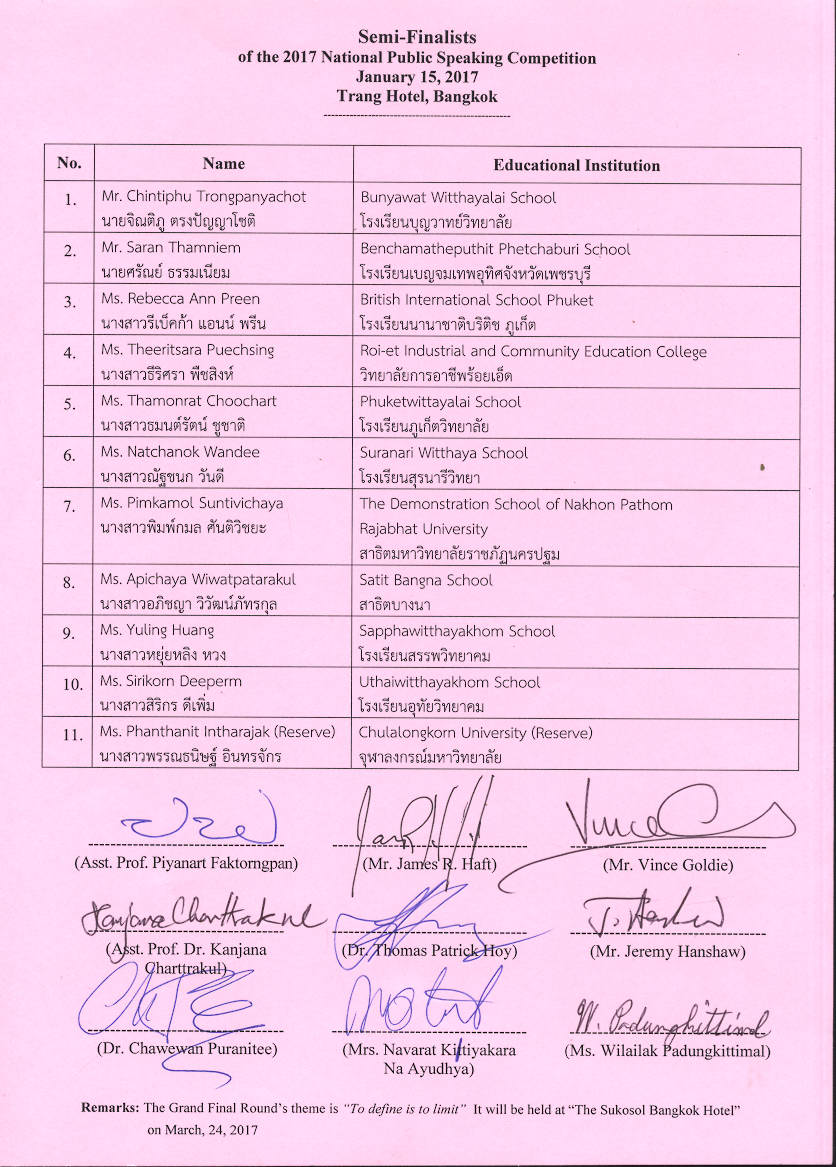 Semi-Finalists
of the 2017 National Public Speaking Competition
January 15, 2017
Trang Hotel, Bangkok
No. Name Educational Institution
1. Mr. Chintiphu Trongpanyachot Bunyawat Witthayalai School
นายจิณติภู ตรงปัญญาโชติ โรงเรียนบุญวาทย์วิทยาลัย
2. Mr. Saran Thamniem Benchamatheputhit Phetchaburi School
นายศรัณย์ ธรรมเนียม โรงเรียนเบญจมเทพอุทิศจังหวัดเพชรบุรี
3. Ms. Rebecca Ann Preen British International School Phuket
นางสาวรีเบ็คก้า แอนน์ พรีน โรงเรียนนานาชาติบริติช ภูเก็ต
4. Ms. Theeritsara Puechsing Roi-et Industrial and Community Education College
นางสาวธีริศรา พืชสิงห์ วิทยาลัยการอาชีพร้อยเอ็ด
5. Ms. Thamonrat Choochart Phuketwittayalai School
นางสาวธมนต์รัตน์ ชูชาติ โรงเรียนภูเก็ตวิทยาลัย
6. Ms. Natchanok Wandee Suranari Witthaya School
นางสาวณัฐชนก วันดี โรงเรียนสุรนารีวิทยา
7. Ms. Pimkamol Suntivichaya The Demonstration School of Nakhon Pathom
นางสาวพิมพ์กมล ศันติวิชยะ Rajabhat University
สาธิตมหาวิทยาลัยราชภัฏนครปฐม
8. Ms. Apichaya Wiwatpatarakul Satit Bangna School
นางสาวอภิชญา วิวัฒน์ภัทรกุล สาธิตบางนา
9. Ms. Yuling Huang Sapphawitthayakhom School
นางสาวหยุ่ยหลิง หวง โรงเรียนสรรพวิทยาคม
10. Ms. Sirikorn Deeperm Uthaiwitthayakhom School
นางสาวสิริกร ดีเพิ่ม โรงเรียนอุทัยวิทยาคม
11. Ms. Phanthanit Intharajak (Reserve) Chulalongkorn University (Reserve)
นางสาวพรรณธนิษฐ์ อินทรจักร จุฬาลงกรณ์มหาวิทยาลัย
Vince
(Asst. Prof. Piyanart Faktorngpan) (Mr. James R. Haft) (Mr. Vince Goldie)
Kanjana Charttrakul J. Hanshaw
(Asst. Prof. Dr. Kanjana (Dr. Thomas Patrick Hoy) (Mr. Jeremy Hanshaw)
Charttrakul)
W. Padungkittimal
(Dr. Chawewan Puranitee) (Mrs. Navarat Kittiyakara (Ms. Wilailak Padungkittimal)
Na Ayudhya)
Remarks: The Grand Final Round's theme is "To define is to limit" It will be held at "The Sukosol Bangkok Hotel"
on March, 24, 2017